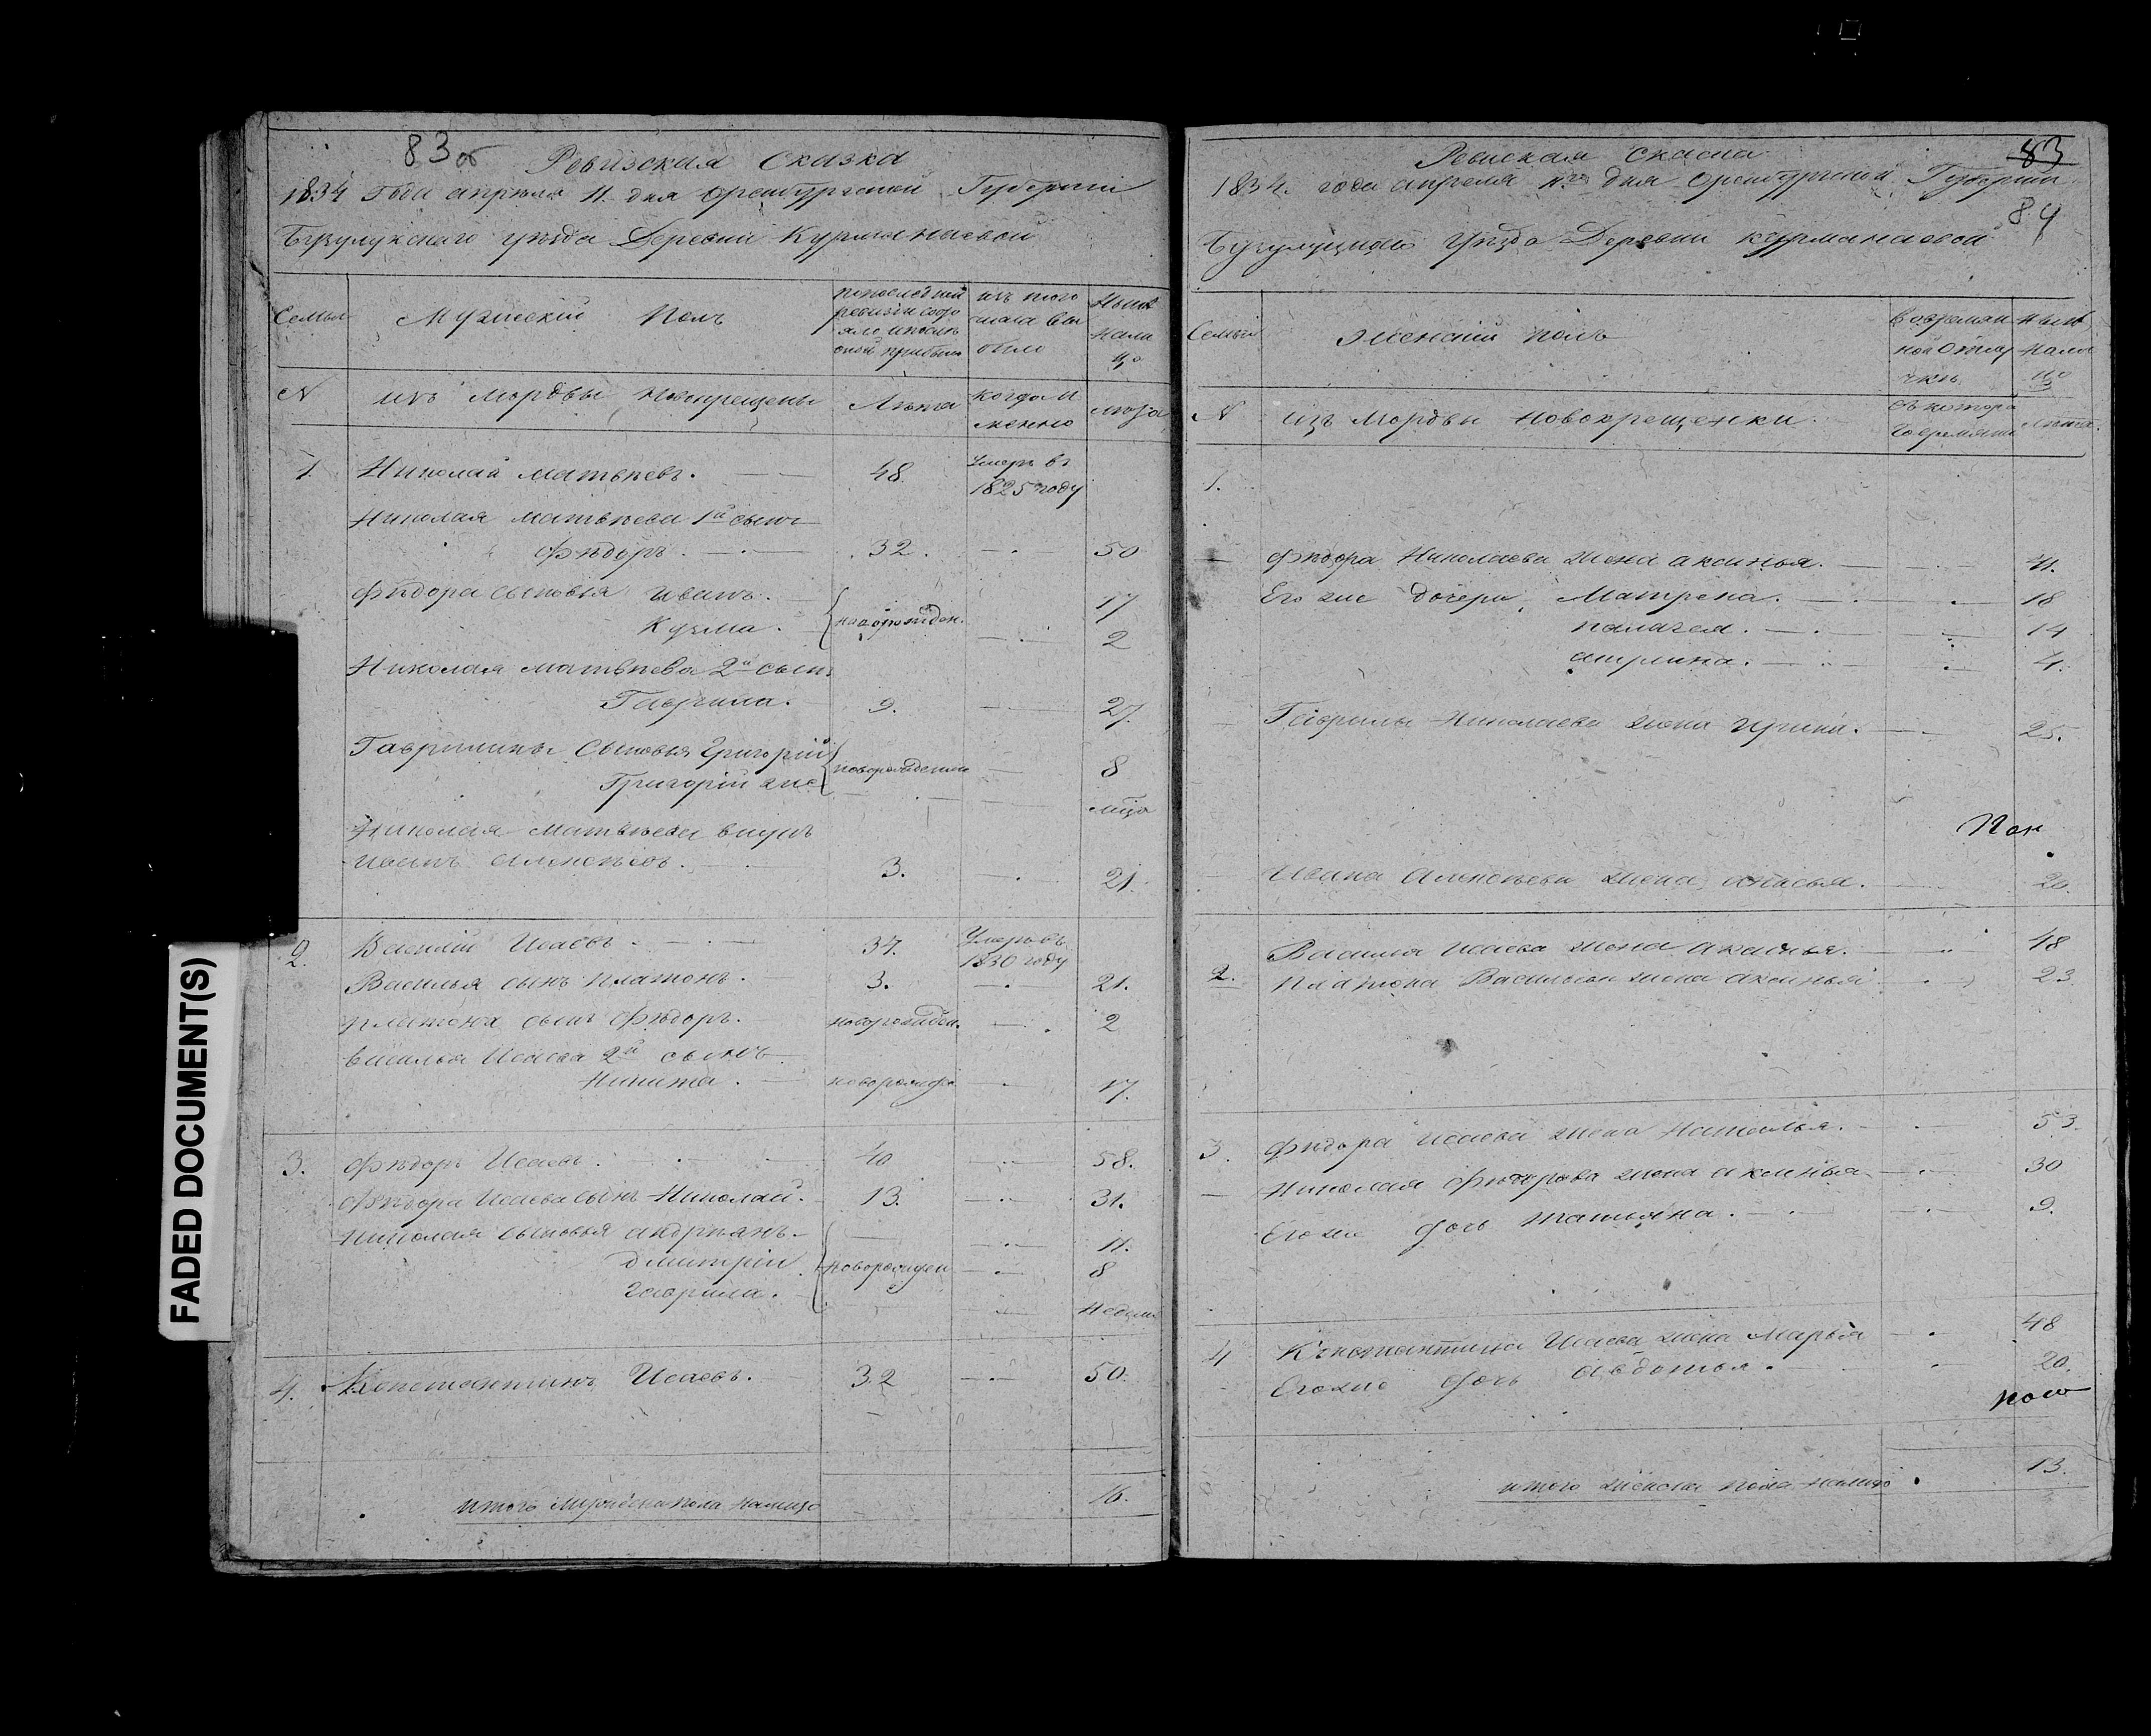 83 об
Ревизская Сказка
1834 Года апреля 11. дня Оренбургской Губернии
Бузулукского уезда Деревни Курманаевой
Семьи
Мужеский Полъ
по последней ревизии состояло и после оной прибыло
изъ того числа выбыло
Ныне налицо
№
изъ Мордвы новокрещены
Лета
когда именно
лета
1. Николай Матвеевъ. 48 Умеръ въ 1825 году
Николая Матвеева 1й сынъ
Фёдоръ. 32. 50
Фёдора сыновья Иванъ. 17
Кузма. новорожден. 2
Николая Матвеева 2й сынъ
Гаврила. 9. 27.
Гаврилины Сыновья Григорий 8
Григорий же новорожденны
Николая Матвеева внукъ
Иванъ Алексеевъ. 3. 21.
2. Василий Исаевъ. 37. Умеръ въ 1830 году
Василья сынъ Платонъ. 3. 21.
Платона сынъ Фёдоръ. новорожден. 2
Василья Исаева 2й сынъ
Никита. новорожде 17.
3. Фёдоръ Исаевъ. 40 58.
Фёдора Исаева сынъ Николай. 13. 31.
Николая сыновья Андриянъ. 11.
Дмитрий новорожден 8
Гаврила.
4. Константинъ Исаевъ. 32 50.
итого мужеска пола налицо 16.
FADED DOCUMENT(S)
83
84
1834. года апреля 11го дня Оренбургской Губернии
Деревни Курманаевой
Семьи
Женский полъ
Ныне налицо
№
изъ Мордвы новокрещенки.
лета.
1.
Фёдора Николаева жена Аксинья. 41.
Его же дочери, Матрена. 18
Палагея. 14
4.
Гаврилы Николаева жена Ирина. 25.
Ивана Алексеева жена 20.
2. Василья Исаева жена 48
Платона Васильева жена Аксинья 23
3. Фёдора Исаева жена Наталья. 53.
Николая Фёдорова жена Аксинья 30
Его же дочь Татьяна. 9.
4 Константина Исаева жена Марья 48
Его же дочь Авдотья. 20.
итого женска пола налицо 13.